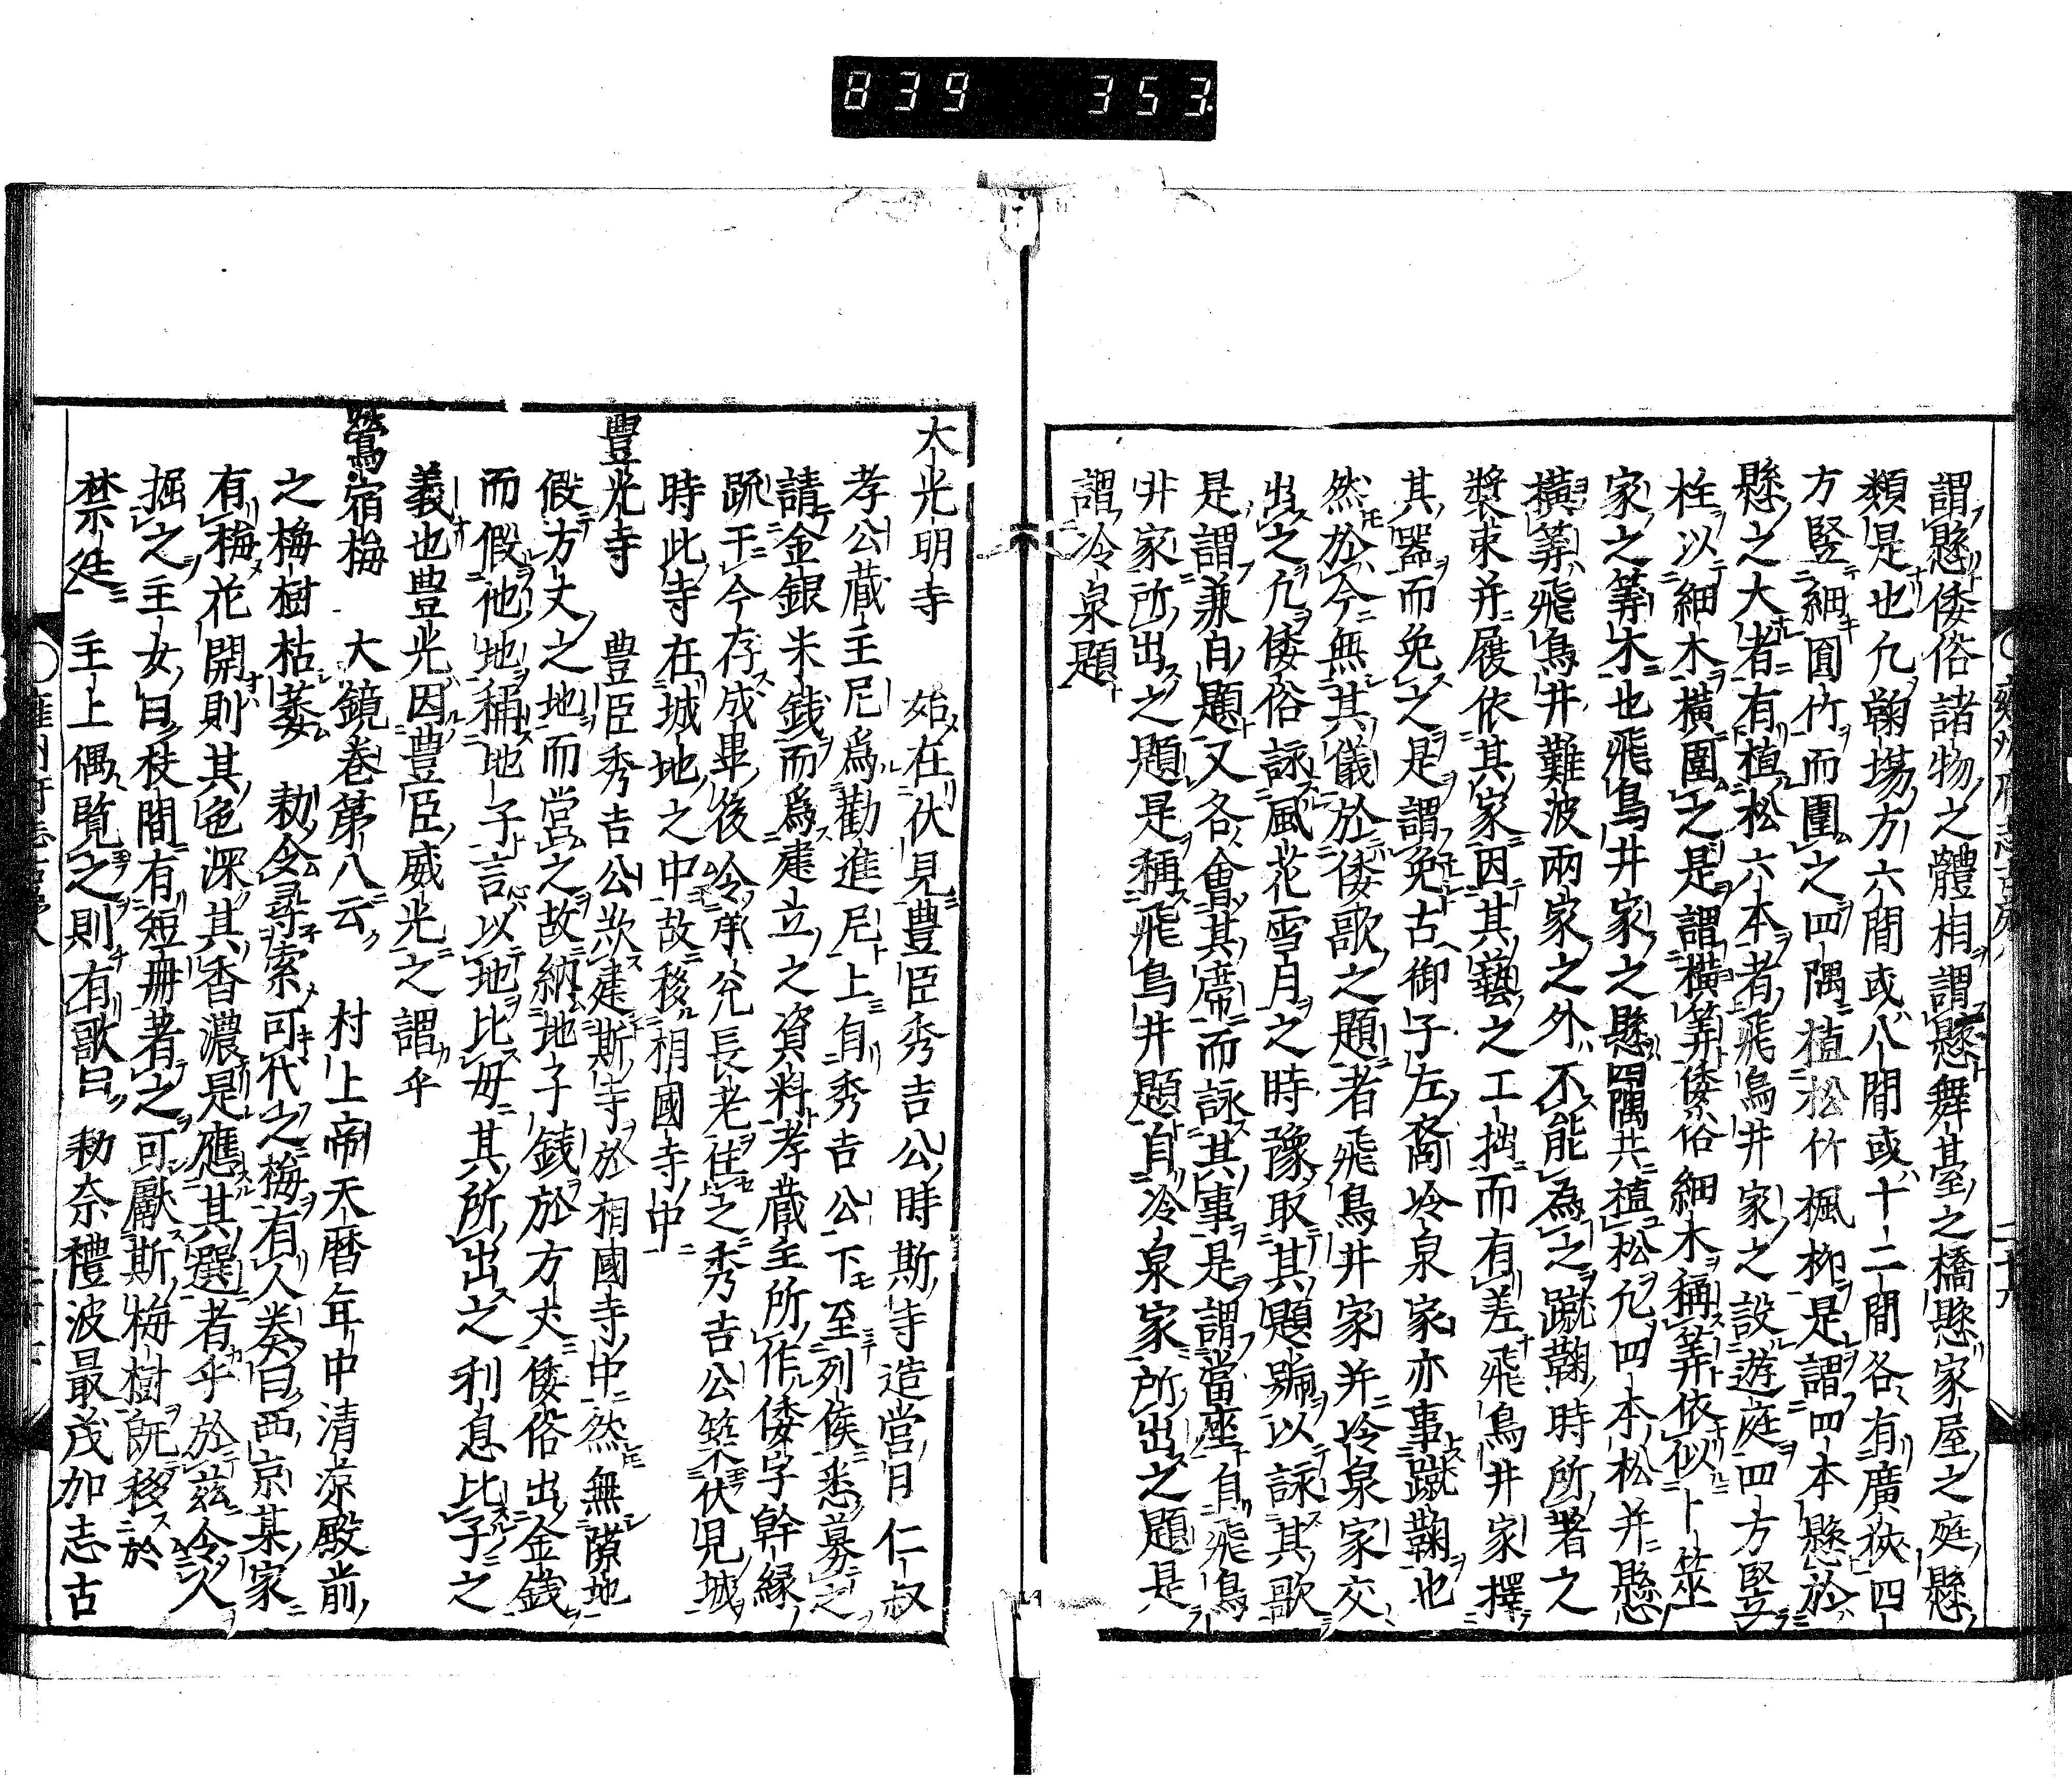 839 353
謂懸倭俗諸物之體相謂懸舞臺之橋懸家屋之庭懸
類是也凢鞠塲方六間或八間或十二間各有廣狹四
方竪細圓竹而圍之四隅植松竹楓柳是謂四本懸於
懸之大者有植松六本者飛鳥井家之設遊庭四方竪
柱以細木横圍之是謂横筭倭俗細木稱筭依似卜筮
家之筭木也飛鳥井家之懸四隅共植松凢四本松并懸
横筭飛鳥井難波兩家之外不能為之蹴鞠時所著之
裝束并履依其家因其藝之工拙而有差飛鳥井家擇
其器而免之是謂免古御子左裔冷泉家亦事蹴鞠也
然於今無其儀於倭歌之題者飛鳥井家并冷泉家交
出之凢倭俗詠風花雪月之時豫取其題號以詠其歌
是謂兼自題又各會其席而詠其事是謂當座自飛鳥
井家所出之題是稱飛鳥井題自冷泉家所出之題是
謂冷泉題
大光明寺 始在伏見豊臣秀吉公時斯寺造營日仁叔
孝公蔵主尼爲勸進尼上自秀吉公下至列侯悉募之
請金銀米錢而爲建立之資料孝蔵主所作倭字幹縁
疏于今存成畢後令承兌長老住之秀吉公築伏見城
時此寺在城地之中故移相國寺中
豊光寺 豊臣秀吉公欲建斯寺於相國寺中然無隙地
假方丈之地而當之故納地子錢於方丈倭俗出金錢
而假他地稱地子言以地比母其所出之利息比子之
義也豊光因豊臣威光之謂乎
鶯宿梅 大鏡巻第八云 村上帝天暦年中清凉殿前
之梅樹枯萎 勅令尋索可代之梅有人奏曰西京某家
有梅花開則其色深其香濃是應其選者乎於茲令人
掘之主女曰枝間有短冊着之可獻斯梅樹既移於
禁廷 主上偶覧之則有歌曰勅奈禮波最茂加志古